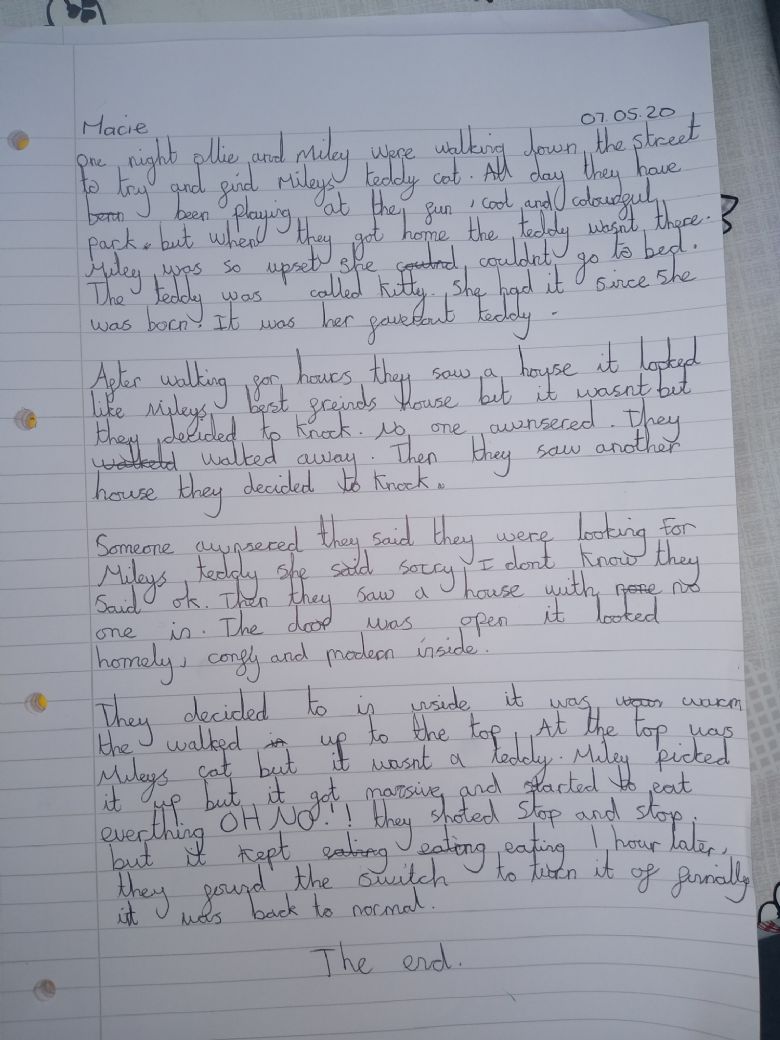 Macie
07.05.20
One night ollie and Miley were walking down the street
to try and find Mileys teddy cat. All day they have
been playing at the fun, cool and colourful
park. but when they got home the teddy wasnt there.
Miley was so upset she couldnt go to bed.
The teddy was called Kitty. She had it since she
was born. It was her faverout teddy.
After walking for hours they saw a house it looked
like Mileys best freinds house but it wasnt but
they decided to knock. No one awnsered. They
walked away. Then they saw another
house they decided to knock.
Someone awnsered they said they were looking For
Mileys teddy she said sorry I dont know they
said ok. Then they saw a house with no
one in. The door was open it looked
homely, confy and modern inside.
They decided to in inside it was warm
the walked up to the top. At the top was
Mileys cat but it wasnt a teddy. Miley picked
it up but it got marsive and started to eat
everthing OH NO!! they shoted Stop and stop.
but it kept eating 1 hour later,
they found the switch to turn it of finnally
it was back to normal.
The end.